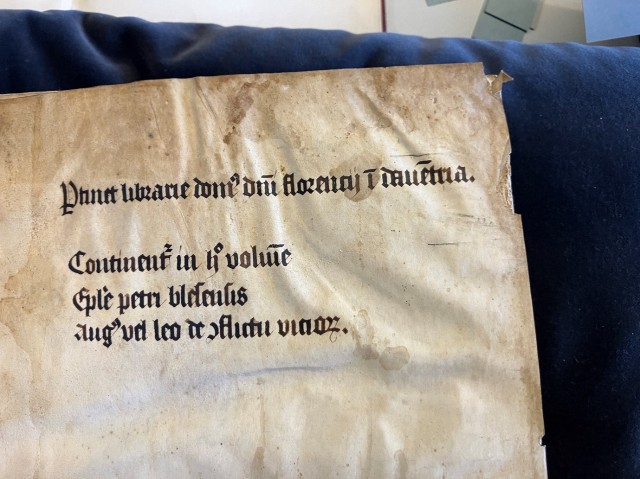 Ꝑtinet librarie domꝰ dn̄i florencij ī dauētria.
Continent᷑ in hͦ volūīe
Ep̄le petri blesensis
Augꝰ vel leo de ꝯflictu vicioꝝ.